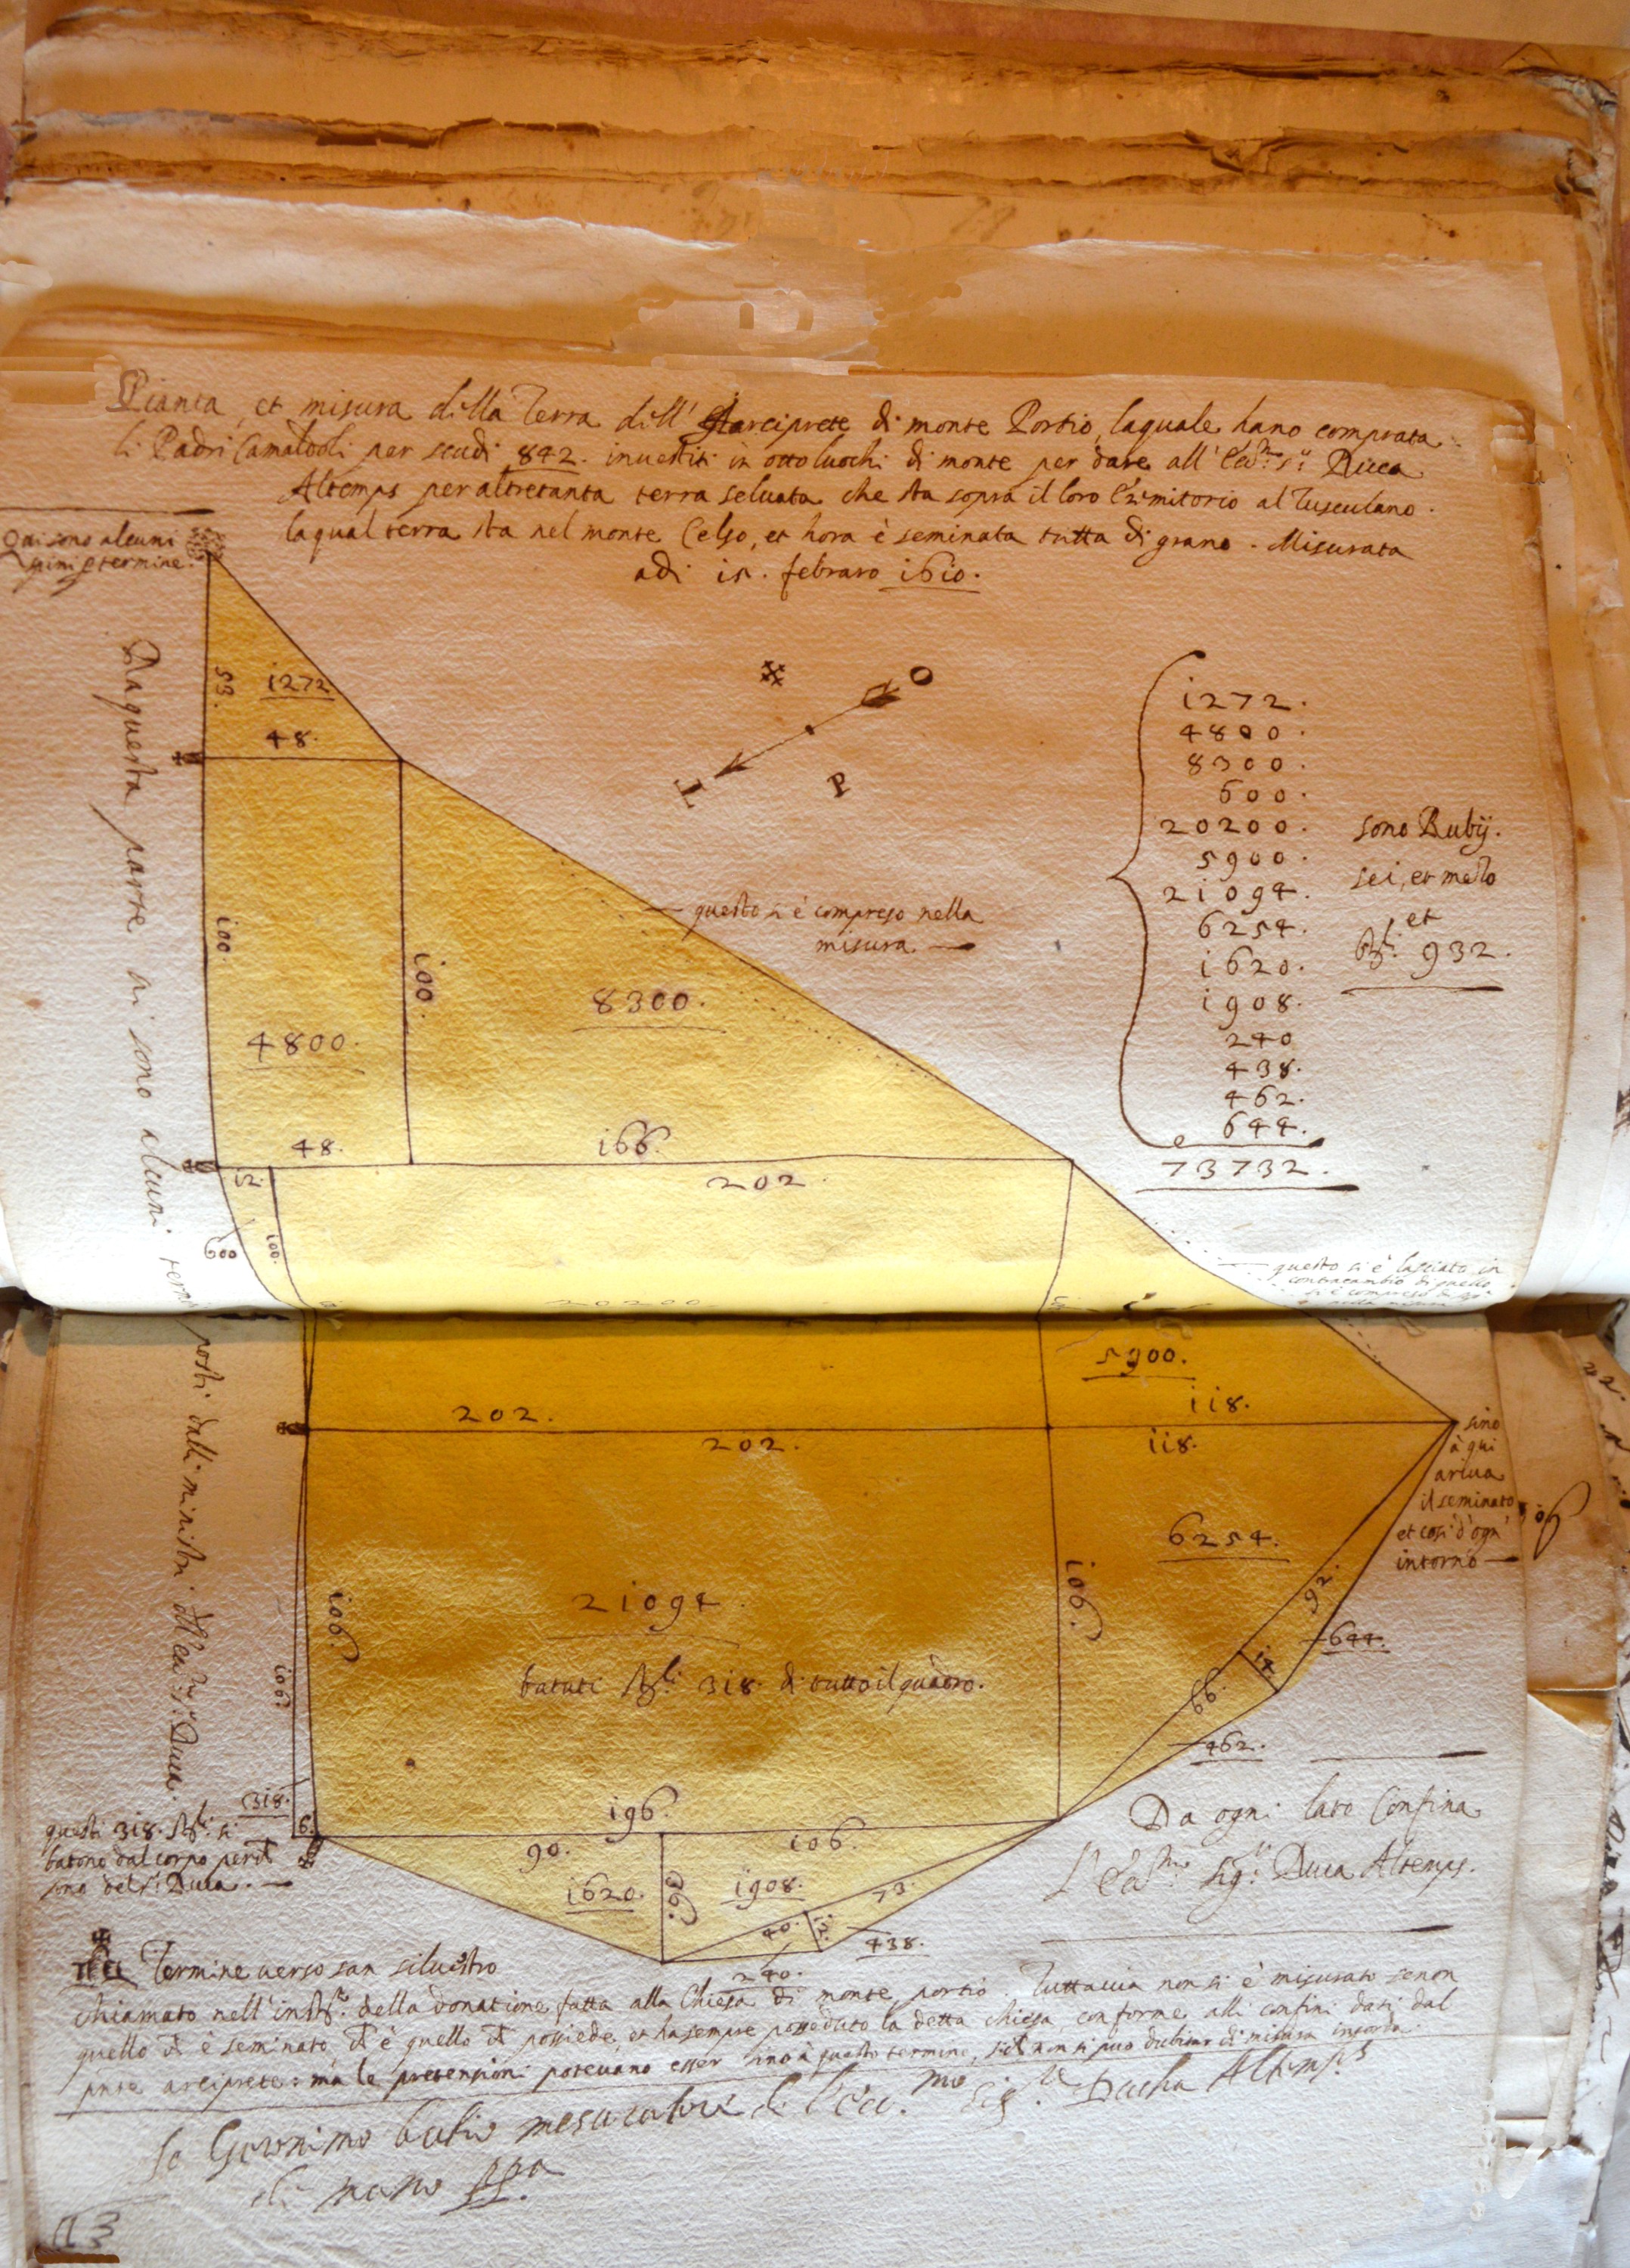 Pianta, et misura della Terra dell' Arciprete di monte Portio, laquale hano comprata
li Padri Camaldoli per scudi 842. investiti in otto luochi di monte per dare all' Ecc.mo s.r Duca
Altemps per altretanta terra selvata che sta sopra il loro Eremitorio al Tusculano.
laqual terra sta nel monte Celso, et hora è seminata tutta di grano. Misurata
adi 15. febraro 1610.
Qui sono alcuni
spini per termine.
Da questa parte vi sono alcuni termini posti dalli ministri dell' Ecc.mo s.r Duca.
O
T
P
53.
1272
48.
100
100.
4800.
8300.
questo si è compreso nella
misura.
1272.
4800.
8300.
600.
20200.
5900.
21094.
6254.
1620.
1908.
240
438.
462.
644.
73732.
sono Rubij.
sei, et mezo
et
932.
48.
166.
202.
12.
600
100.
questo si è lasciato in
contracambio di quello
20200
5900.
118.
202.
202.
118.
sino
à qui
ariva
il seminato
et cosi d'ogn'
intorno
6254.
106.
106.
106.
21094.
batuti 318. di tutto il quadro.
92.
644.
14.
66.
462.
318.
6.
questi 318. si
batono dal corpo perche
sono del s.r Duca.
196.
90.
106.
1620.
36.
1908.
73.
40.
12.
438.
240.
Da ogni lato Confina
l' Ecc.mo sig.r Duca Altemps.
Termine verso san silvestro
chiamato nell' della donatione fatta alla Chiesa di monte portio. Tuttavia non si è misurato se non
quello che è seminato che è quello che possiede, et ha sempre posseduto la detta chiesa conforme alli confini dati dal
pnte arciprete: ma le pretensioni potevano esser sino à questo termine, siche non si può dubitar di misura
Io Geronimo mesuratore de l'Ecc.mo Sig.re Ducha Altemps
di mano ppa
113